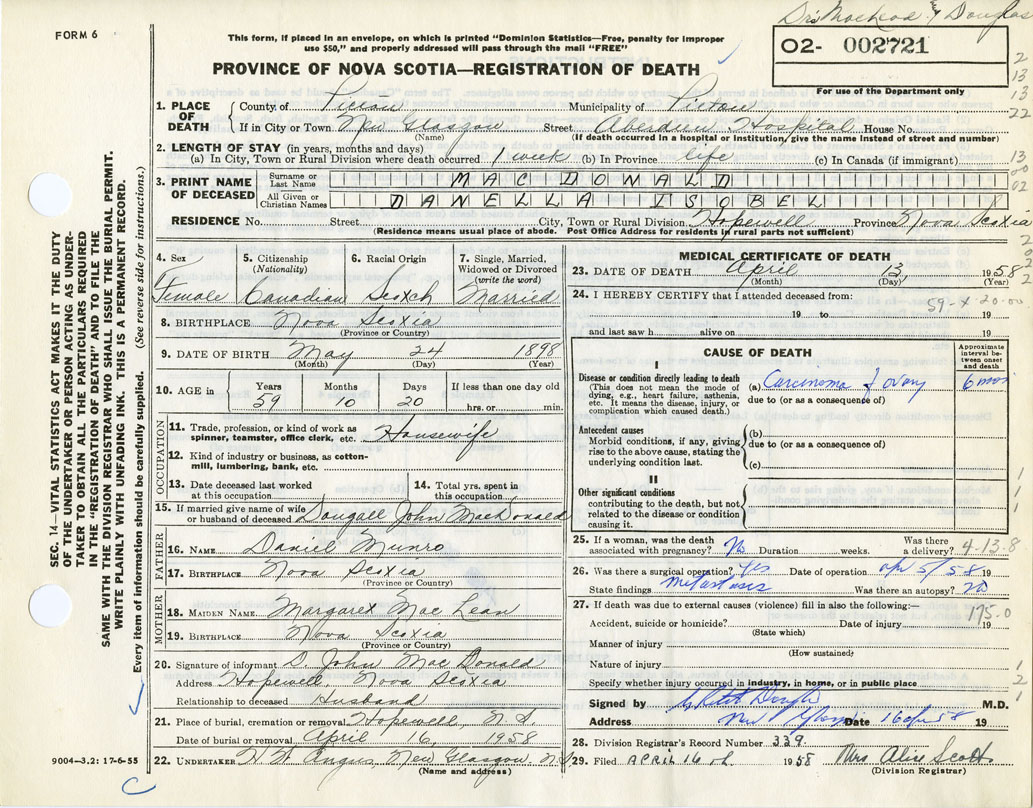 Drs MacLeod & Douglas
FORM 6
This form, if placed in an envelope, on which is printed "Dominion Statistics—Free, penalty for improper
use $50," and properly addressed will pass through the mail "FREE"
O2- 002721
For use of the Department only
PROVINCE OF NOVA SCOTIA—REGISTRATION OF DEATH
1. PLACE OF DEATH
County of Pictou Municipality of Pictou
If in City or Town New Glasgow Street Aberdeen Hospital House No.
(Name) (If death occurred in hospital or institution, give the name instead of street and number)
2. LENGTH OF STAY (in years, months and days)
(a) In City, Town or Rural Division where death occurred 1 week (b) In Province life (c) In Canada (if immigrant)
3. PRINT NAME OF DECEASED
Surname or Last Name MACDONALD
All Given or Christian Names DANELLA ISOBEL
RESIDENCE No. Street City, Town or Rural Division Hopewell Province Nova Scotia
(Residence means usual place of abode. Post Office Address for residents in rural parts not sufficient)
4. Sex Female
5. Citizenship (Nationality) Canadian
6. Racial Origin Scotch
7. Single, Married, Widowed or Divorced (write the word) Married
8. BIRTHPLACE Nova Scotia
(Province or Country)
9. DATE OF BIRTH May 24 1898
(Month) (Day) (Year)
10. AGE in Years 59 Months 10 Days 20 If less than one day old hrs. or min.
OCCUPATION
11. Trade, profession, or kind of work as spinner, teamster, office clerk, etc. Housewife
12. Kind of industry or business, as cotton-mill, lumbering, bank, etc.
13. Date deceased last worked at this occupation
14. Total yrs. spent in this occupation
15. If married give name of wife or husband of deceased Dougall John MacDonald
FATHER
16. NAME Daniel Munro
17. BIRTHPLACE Nova Scotia
(Province or Country)
MOTHER
18. MAIDEN NAME Margaret MacLean
19. BIRTHPLACE Nova Scotia
(Province or Country)
20. Signature of informant D. John MacDonald
Address Hopewell, Nova Scotia
Relationship to deceased Husband
21. Place of burial, cremation or removal Hopewell, N.S.
Date of burial or removal April 16, 1958
22. UNDERTAKER H W Angus, New Glasgow, N.S.
(Name and address)
MEDICAL CERTIFICATE OF DEATH
23. DATE OF DEATH April 13 1958
(Month) (Day) (Year)
24. I HEREBY CERTIFY that I attended deceased from:
59-x 20-00
19 to 19
and last saw h alive on 19
CAUSE OF DEATH
Approximate interval between onset and death
I
Disease or condition directly leading to death
(This does not mean the mode of dying, e.g., heart failure, asthenia, etc. It means the disease, injury, or complication which caused death.)
(a) Carcinoma of ovary 6 mos
due to (or as a consequence of)
Antecedent causes
Morbid conditions, if any, giving rise to the above cause, stating the underlying condition last.
(b)
due to (or as a consequence of)
(c)
II
Other significant conditions
contributing to the death, but not related to the disease or condition causing it.
25. If a woman, was the death associated with pregnancy? No Duration weeks. Was there a delivery? 4-13-8
26. Was there a surgical operation? Yes Date of operation Apr 5/58 19
State findings Metastases Was there an autopsy? no
27. If death was due to external causes (violence) fill in also the following:—
175-0
Accident, suicide or homicide? Date of injury 19
(State which)
Manner of injury
(How sustained)
Nature of injury
Specify whether injury occurred in industry, in home, or in public place
Signed by M.D.
Address New Glasgow Date 16 Apr 58 19
28. Division Registrar's Record Number 339
29. Filed APRIL 16 th. 1958 Mrs Alice Scott
(Division Registrar)
SEC. 14—VITAL STATISTICS ACT MAKES IT THE DUTY
OF THE UNDERTAKER OR PERSON ACTING AS UNDER-
TAKER TO OBTAIN ALL THE PARTICULARS REQUIRED
IN THE "REGISTRATION OF DEATH" AND TO FILE THE
SAME WITH THE DIVISION REGISTRAR WHO SHALL ISSUE THE BURIAL PERMIT.
WRITE PLAINLY WITH UNFADING INK. THIS IS A PERMANENT RECORD.
Every item of information should be carefully supplied. (See reverse side for instructions.)
9004—3.2: 17-6-55